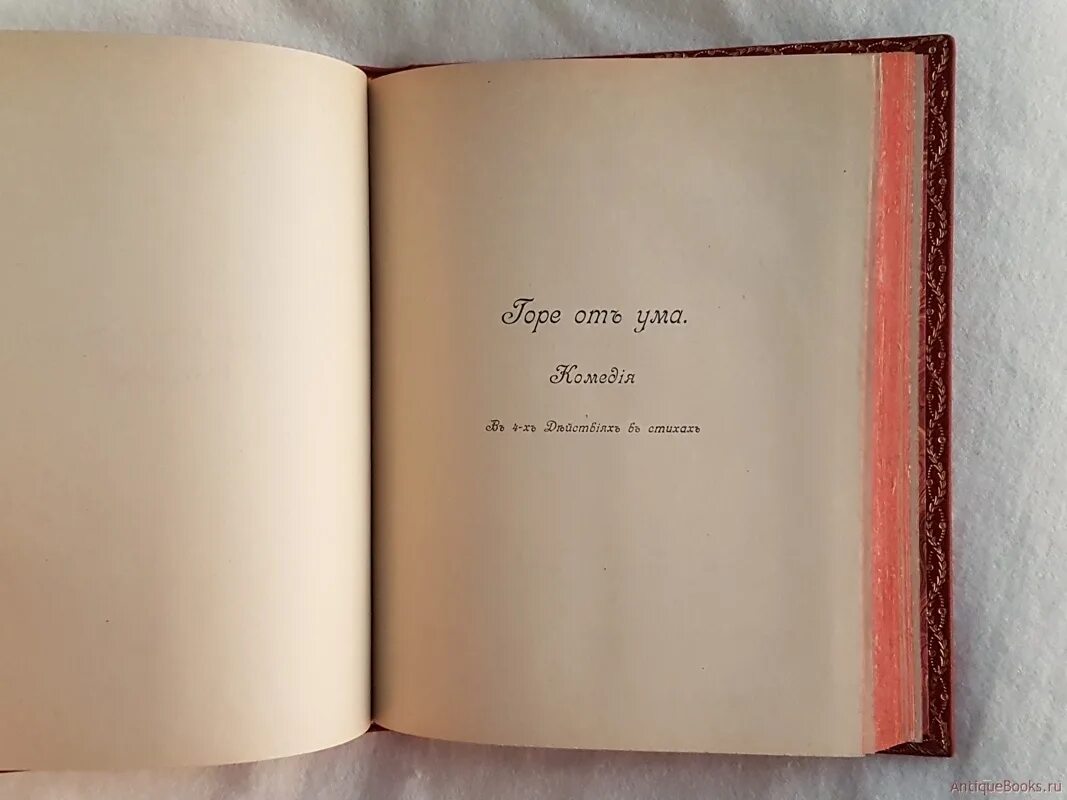 Горе отъ ума.
Комедія
Въ 4-хъ Дѣйствіяхъ въ стихахъ
AntiqueBooks.ru